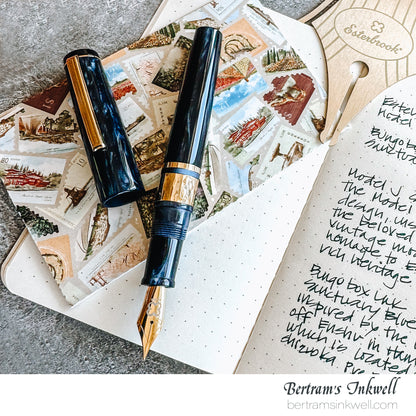 Esterbrook
Este
Model
Bungo
Sanctua
Model J
the Model
design, ins
the beloved
vintage mod
homage to E
rich heritage
Bungobox ink
Sanctuary Blue
inspired by the
off Enshu in Ham
which is located
Shizuoka. Pre
80
Bertram's Inkwell
bertramsinkwell.com